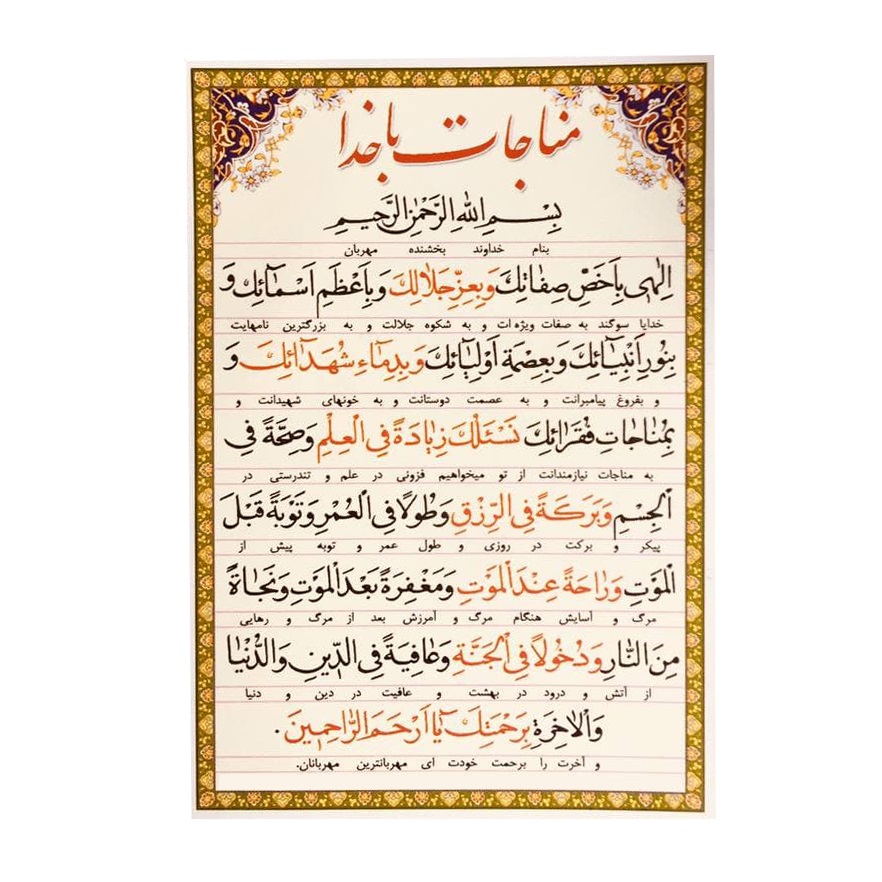 مناجات با خدا
بِسْمِ اللهِ الرَّحْمٰنِ الرَّحيمِ
بنام خداوند بخشنده مهربان
اِلٰهي بِاَخَصِّ صِفاتِكَ وَبِعِزِّ جَلالِكَ وَبِاَعْظَمِ اَسْمآئِكَ وَ
خدایا سوگند به صفات ویژه ات و به شکوه جلالت و به بزرگترین نامهایت
بِنُورِ اَنْبِيآئِكَ وَبِعِصْمَةِ اَوْلِيآئِكَ وَبِدِمآءِ شُهَدآئِكَ وَ
و بفروغ پیامبرانت و به عصمت دوستانت و به خونهای شهیدانت و
بِمُناجاتِ فُقَرائِكَ نَسْئَلُكَ زِيادَةً فِي الْعِلْمِ وَصِحَّةً فِي
به مناجات نیازمندانت از تو میخواهیم فزونی در علم و تندرستی در
الْجِسْمِ وَبَرَكَةً فِي الرِّزْقِ وَطُولاً فِي الْعُمْرِ وَتَوْبَةً قَبْلَ
پیکر و برکت در روزی و طول عمر و توبه پیش از
الْمَوْتِ وَراحَةً عِنْدَ الْمَوْتِ وَمَغْفِرَةً بَعْدَ الْمَوْتِ وَنَجاةً
مرگ و آسایش هنگام مرگ و آمرزش بعد از مرگ و رهایی
مِنَ النّارِ وَدُخُولاً فِي الْجَنَّةِ وَعافِيَةً فِي الدّينِ وَالدُّنْيا
از آتش و درود در بهشت و عافیت در دین و دنیا
وَالْاٰخِرَةِ بِرَحْمَتِكَ يآ اَرْحَمَ الرّاحِمينَ .
و آخرت را برحمت خودت ای مهربانترین مهربانان.